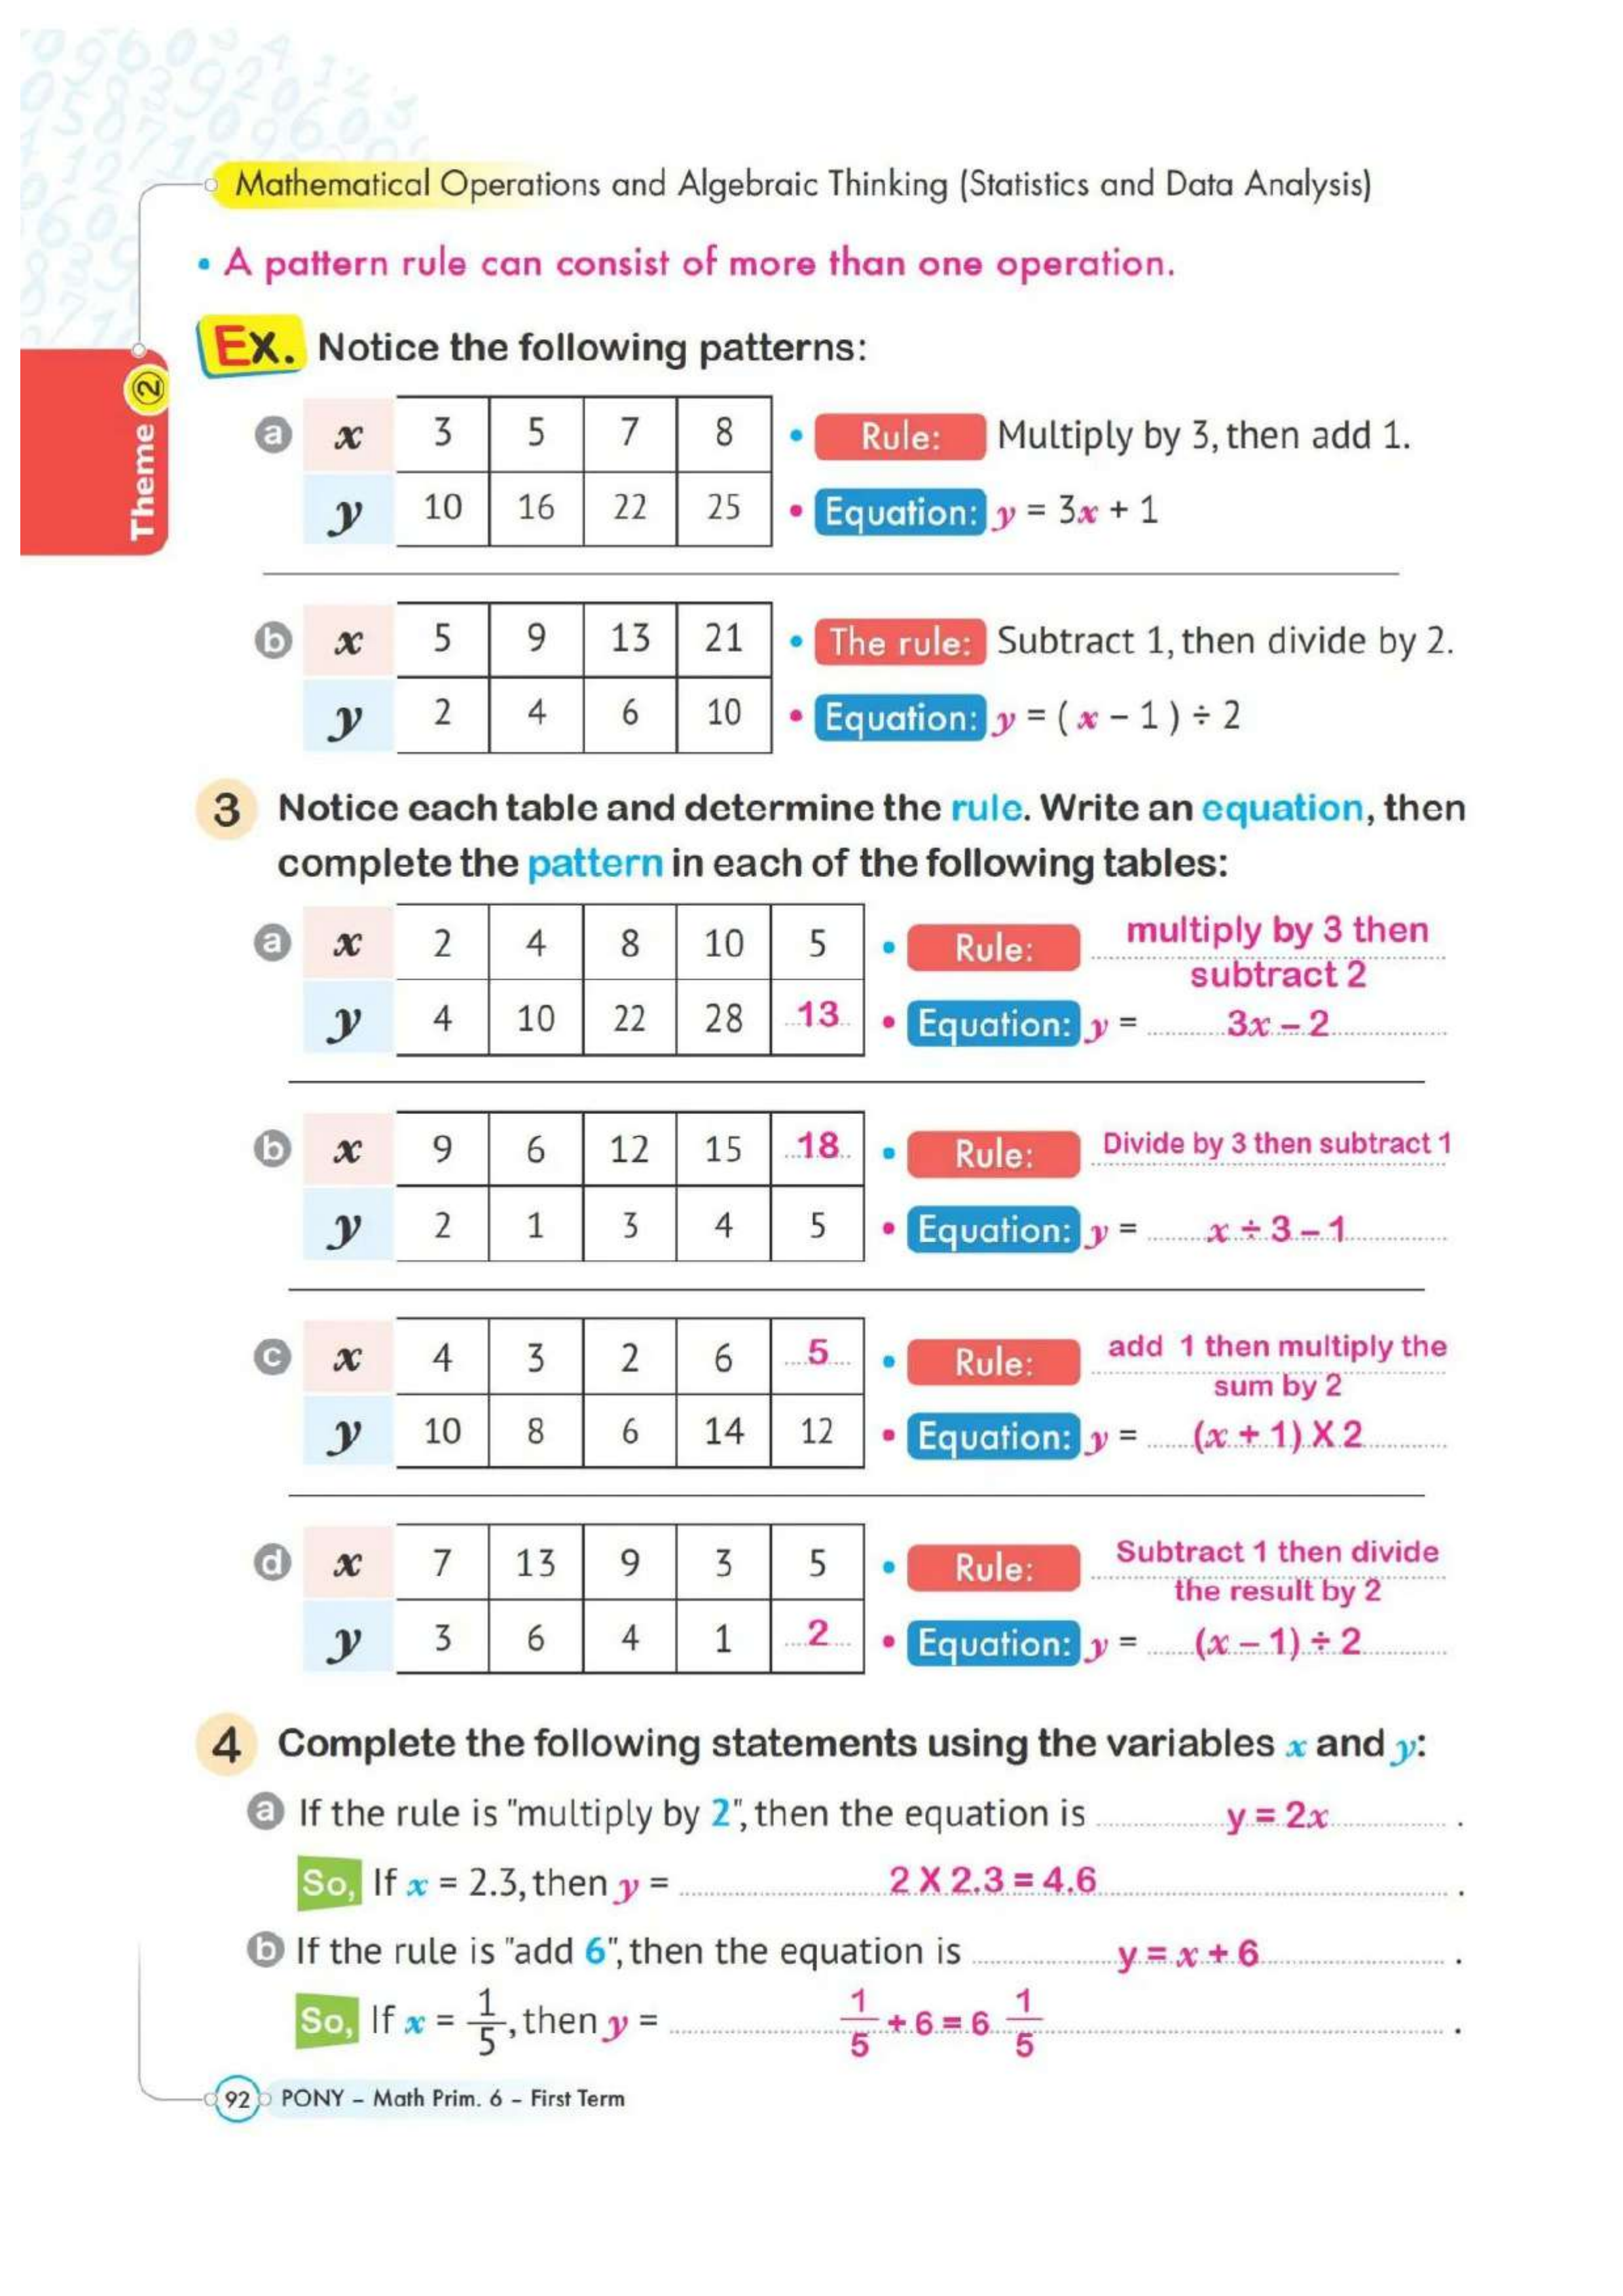 Mathematical Operations and Algebraic Thinking (Statistics and Data Analysis)
• A pattern rule can consist of more than one operation.
Theme 2
Ex. Notice the following patterns:
a x 3 5 7 8 • Rule: Multiply by 3, then add 1.
y 10 16 22 25 • Equation: y = 3x + 1
b x 5 9 13 21 • The rule: Subtract 1, then divide by 2.
y 2 4 6 10 • Equation: y = ( x – 1 ) ÷ 2
3 Notice each table and determine the rule. Write an equation, then
complete the pattern in each of the following tables:
a x 2 4 8 10 5 • Rule: multiply by 3 then
subtract 2
y 4 10 22 28 13 • Equation: y = 3x – 2
b x 9 6 12 15 18 • Rule: Divide by 3 then subtract 1
y 2 1 3 4 5 • Equation: y = x ÷ 3 – 1
c x 4 3 2 6 5 • Rule: add 1 then multiply the
sum by 2
y 10 8 6 14 12 • Equation: y = (x + 1) X 2
d x 7 13 9 3 5 • Rule: Subtract 1 then divide
the result by 2
y 3 6 4 1 2 • Equation: y = (x – 1) ÷ 2
4 Complete the following statements using the variables x and y:
a If the rule is "multiply by 2", then the equation is y = 2x .
So, If x = 2.3, then y = 2 X 2.3 = 4.6 .
b If the rule is "add 6", then the equation is y = x + 6 .
So, If x = 1/5, then y = 1/5 + 6 = 6 1/5 .
92 PONY – Math Prim. 6 – First Term